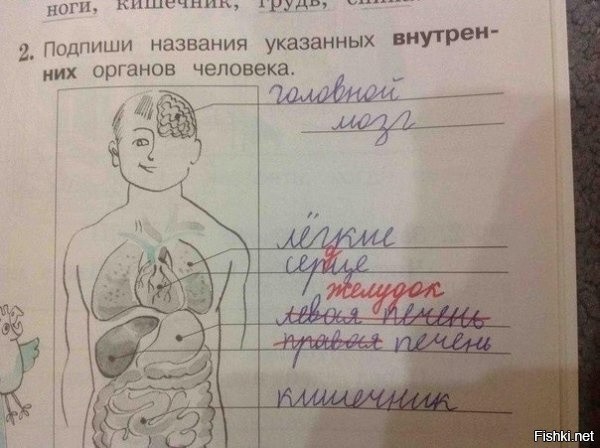 ноги, кишечник, грудь,
2. Подпиши названия указанных внутрен-
них органов человека.
головной
мозг
лёгкие
сердце
желудок
левая печень
правая печень
кишечник
Fishki.net